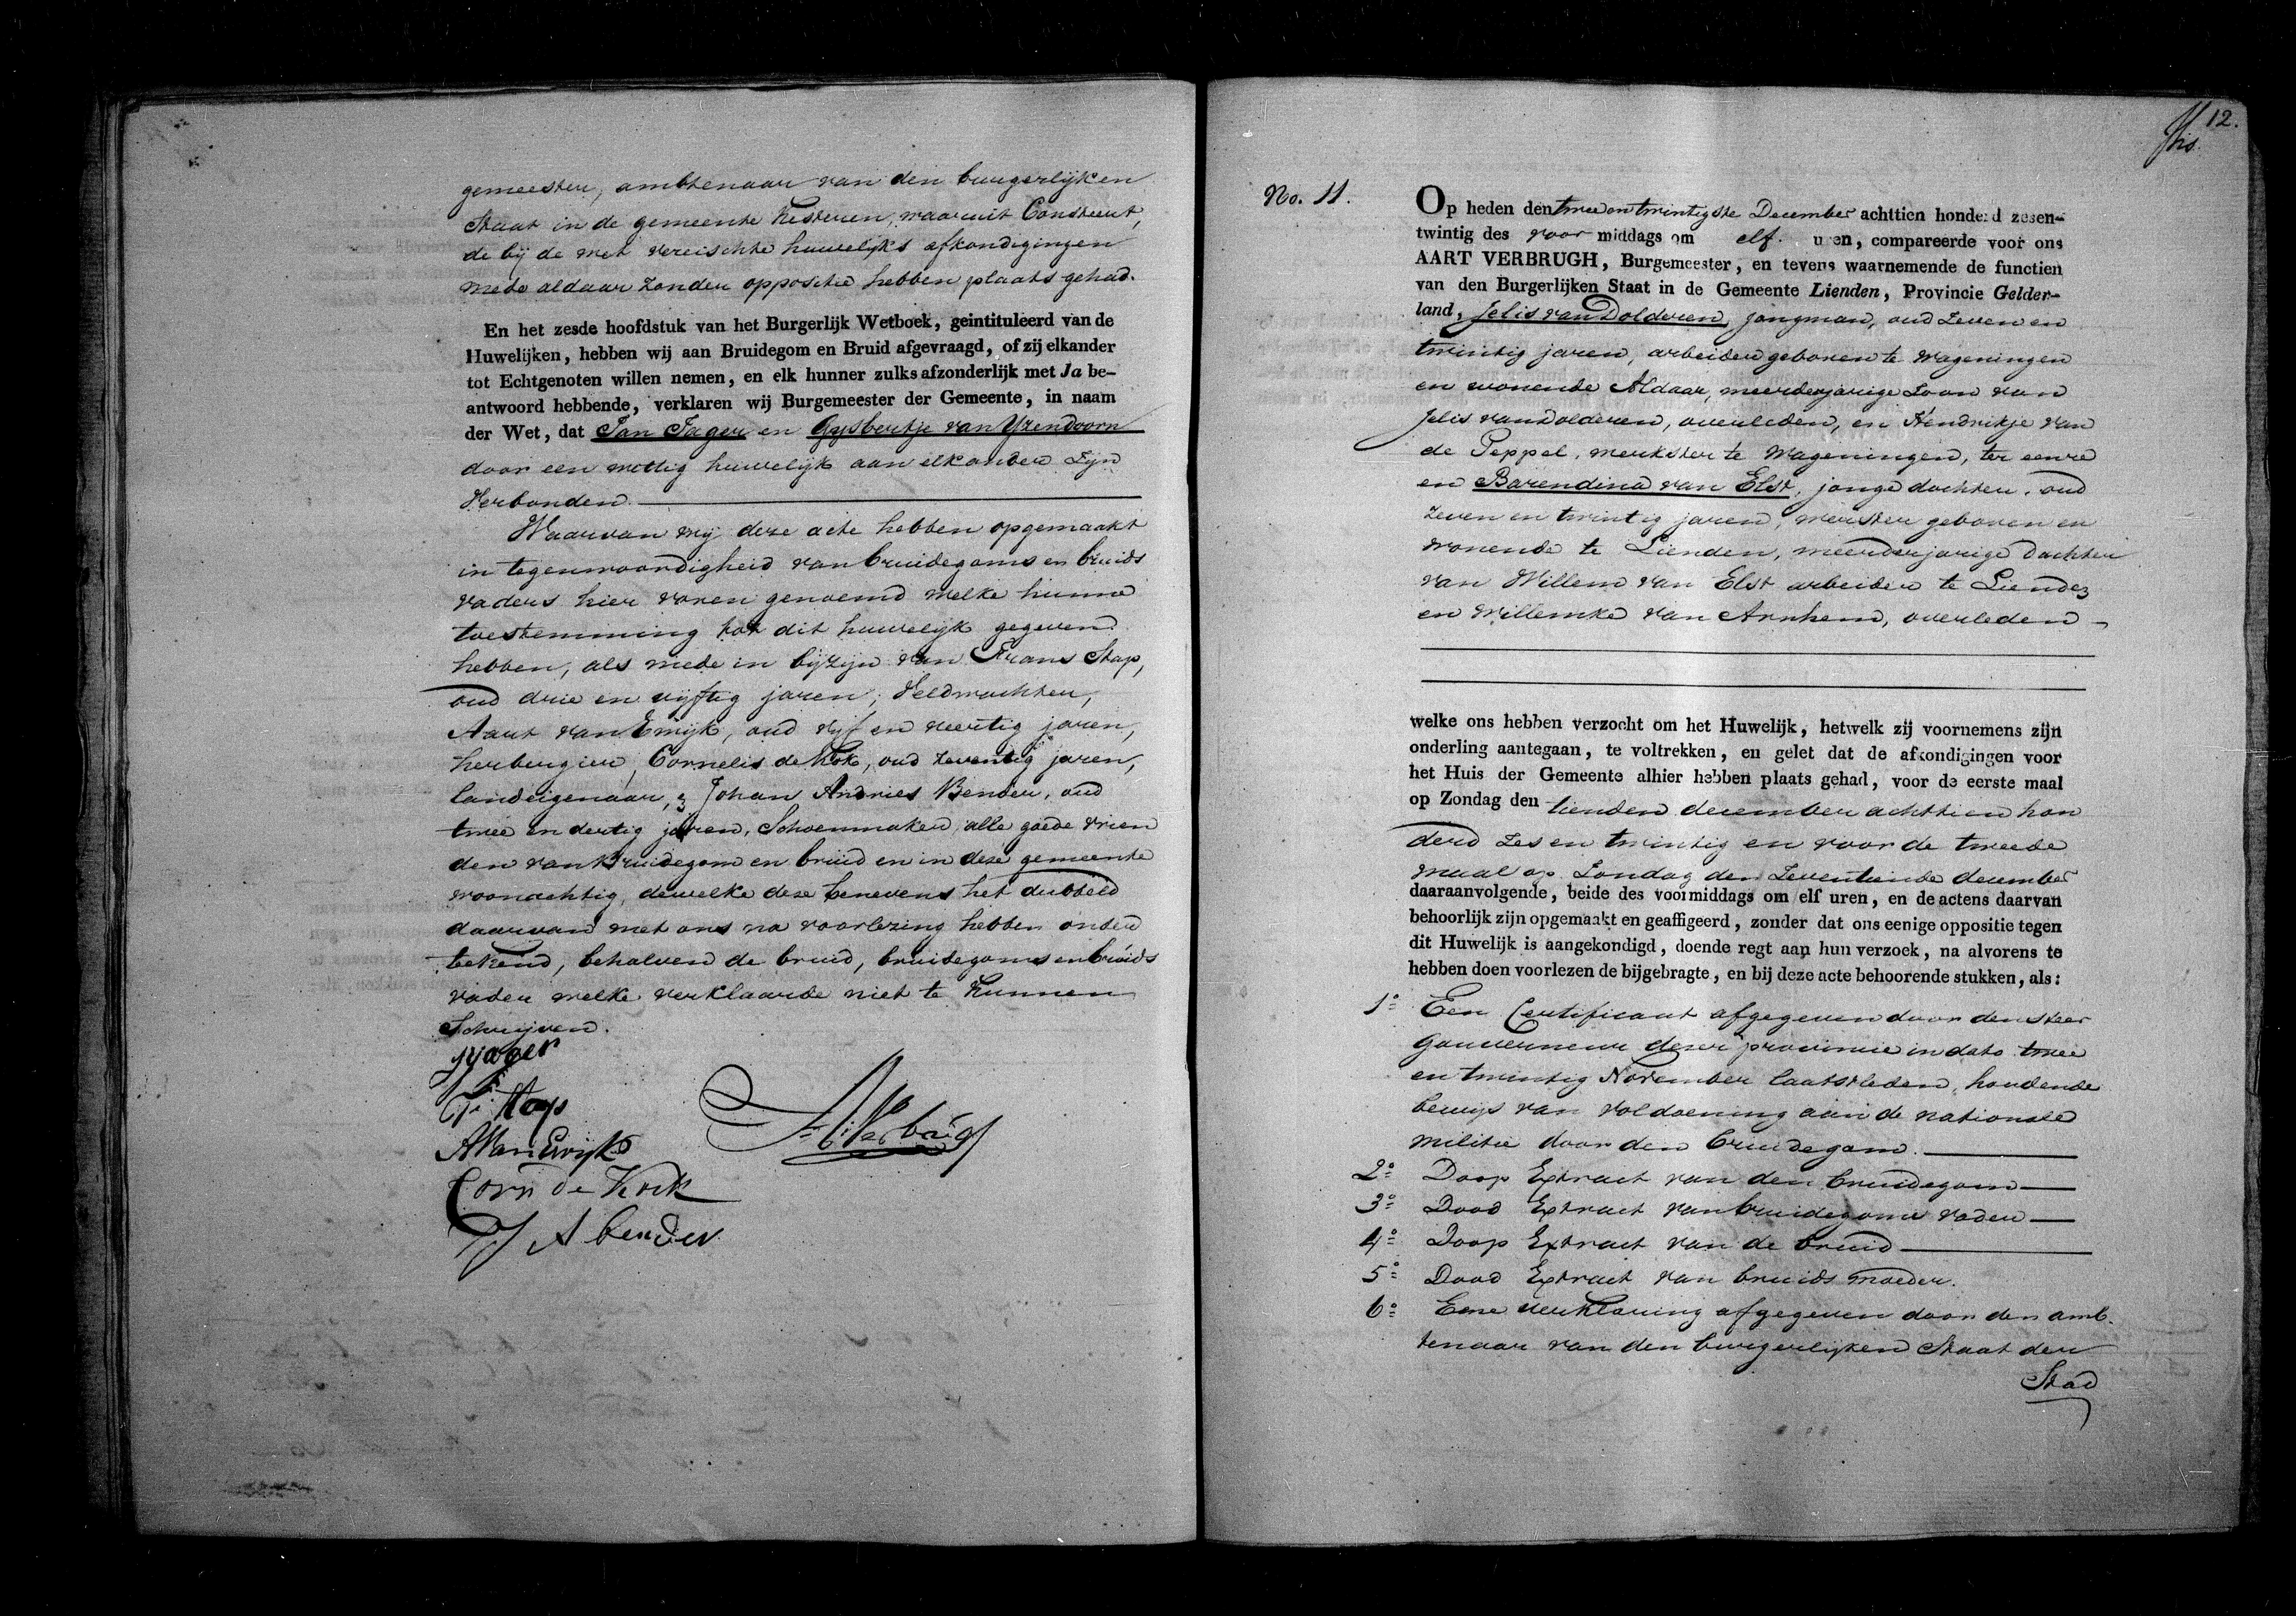 gemeester, ambtenaar van den burgerlijken
Staat in de gemeente Kesteren, waaruit Consteert,
de bij de wet vereischte huwelijks afkondigingen
mede aldaar zonder oppositie hebben plaats gehad.
En het zesde hoofdstuk van het Burgerlijk Wetboek, geintituleerd van de
Huwelijken, hebben wij aan Bruidegom en Bruid afgevraagd, of zij elkander
tot Echtgenoten willen nemen, en elk hunner zulks afzonderlijk met Ja be-
antwoord hebbende, verklaren wij Burgemeester der Gemeente, in naam
der Wet, dat Jan Jager en Gysbertje van Yzendoorn
door een wettig huwelijk aan elkander Zijn
Verbonden.
Waarvan wij deze acte hebben opgemaakt
in tegenwoordigheid van bruidegoms en bruids
vaders hier voren genoemd welke hunne
toestemming tot dit huwelijk gegeven
hebben, als mede in bijzijn van Frans Stap,
oud drie en vijftig jaren, Veldwachter,
Aart van Ewijk, oud vijf en veertig jaren,
herbergier, Cornelis de Kok, oud zeventig jaren,
landeigenaar, & Johan Andries Bender, oud
twee en dertig jaren, Schoenmaker, alle goede vrien
den van Bruidegom en bruid en in deze gemeente
woonachtig, dewelke deze benevens het dubbeld
daarvan met ons na voorlezing hebben onder
tekend, behalven de bruid, bruidegoms en bruids
vader welke verklaarde niet te kunnen
Schrijven.
J Jager
F. Stap
A Van Ewijk
A. Verbrugh
Corn de Kock
J A bender
12.
No. 11.
Op heden den twee en twintigste December achttien honderd zesen-
twintig des voor middags om elf uren, compareerde voor ons
AART VERBRUGH, Burgemeester, en tevens waarnemende de functien
van den Burgerlijken Staat in de Gemeente Lienden, Provincie Gelder-
land, Jelis van Dolderen, jongman, oud Zeven en
twintig jaren, arbeider geboren te wageningen
en wonende Aldaar, meerderjarige Zoon van
Jelis van Dolderen, overleden, en Hendrikje van
de Peppel, werkster te Wageningen, ter eenre
en Barendina van Elst, jonge dochter, oud
Zeven en twintig jaren, werkster geboren en
wonende te Lienden, meerderjarige dochter
van Willem van Elst arbeider te Lienden
en Willemke van Arnhem, overleden
welke ons hebben verzocht om het Huwelijk, hetwelk zij voornemens zijn
onderling aantegaan, te voltrekken, en gelet dat de afkondigingen voor
het Huis der Gemeente alhier hebben plaats gehad, voor de eerste maal
op Zondag den tienden december achttien hon
derd Zes en twintig en voor de tweede
maal op Zondag den Zeventiende december
daaraanvolgende, beide des voormiddags om elf uren, en de actens daarvan
behoorlijk zijn opgemaakt en geaffigeerd, zonder dat ons eenige oppositie tegen
dit Huwelijk is aangekondigd, doende regt aan hun verzoek, na alvorens te
hebben doen voorlezen de bijgebragte, en bij deze acte behoorende stukken, als:
1o Een Certificaat afgegeven door den Heer
Gouverneur dezer provincie in dato twee
en twintig November laatstleden, houdende
bewijs van voldoening aan de nationale
militie door den bruidegom.
2o Doop Extract van den bruidegom
3o Dood Extract van bruidegoms vader
4o Doop Extract van de bruid
5o Dood Extract van bruids moeder.
6o Eene verklaring afgegeven door den amb-
tenaar van den burgerlijken Staat der
Stad